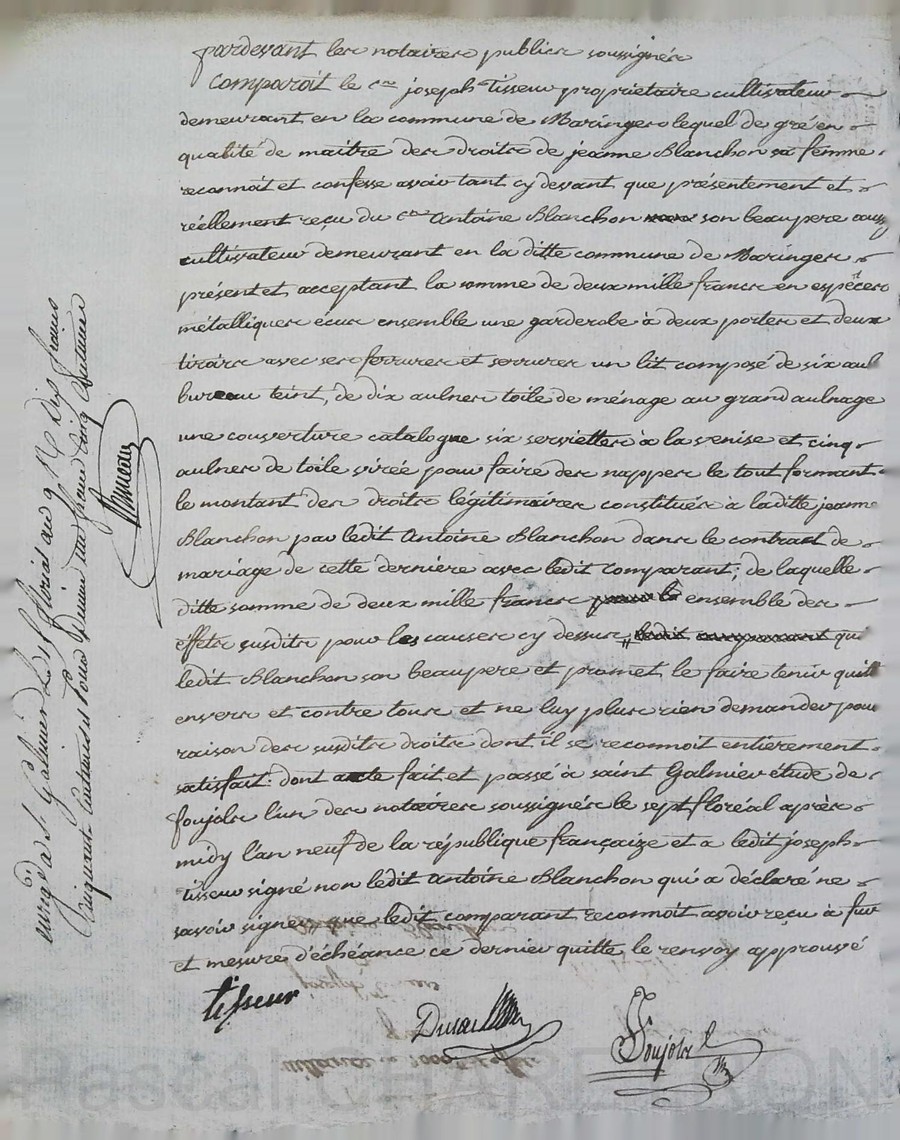 pardevant les notaires publics soussignés
Comparoit le cen joseph tisseur propriétaire cultivateur
demeurant en la commune de Maringes lequel de gré en
qualité de maitre des droits de jeanne Blanchon sa femme
reconnoit et confesse avoir tant cy devant que présentement et
réellement reçu du cen Antoine Blanchon son beaupere aussy
cultivateur demeurant en la ditte commune de Maringes
présent et acceptant la somme de deux mille francs en espèces
métalliques écus ensemble une garderobe à deux portes et deux
tiroirs avec ses ferrures et serrures un lit composé de six aul
bureau teint, de dix aulnes toile de ménage au grand aulnage
une couverture catalogne six serviettes à la venise et cinq
aulnes de toile virée pour faire des nappes le tout formant
le montant des droits légitimaires constitués à laditte jeanne
Blanchon par ledit Antoine Blanchon dans le contract de
mariage de cette dernière avec ledit comparant; de laquelle
ditte somme de deux mille francs ensemble des
éffets susdits pour les causes cy dessus, ledit comparant qui
ledit Blanchon son beaupere et promet le faire tenir quitt
envers et contre tous et ne luy plus rien demander pour
raison des susdits droits dont il se reconnoit entièrement
satisfait. dont acte fait et passé à saint Galmier étude de
foujols l'un des notaires soussignés le sept floréal après
midy l'an neuf de la république françaize et a ledit joseph
tisseur signé non ledit Antoine Blanchon qui a déclaré ne
savoir signer que ledit comparant reconnoit avoir reçu à fur
et mesure d'échéance ce dernier quitte, le renvoy approuvé
tisseur
Foujols
enregé a St Galmier le floréal an 9 Rç dix francs
Cinquante Centimes